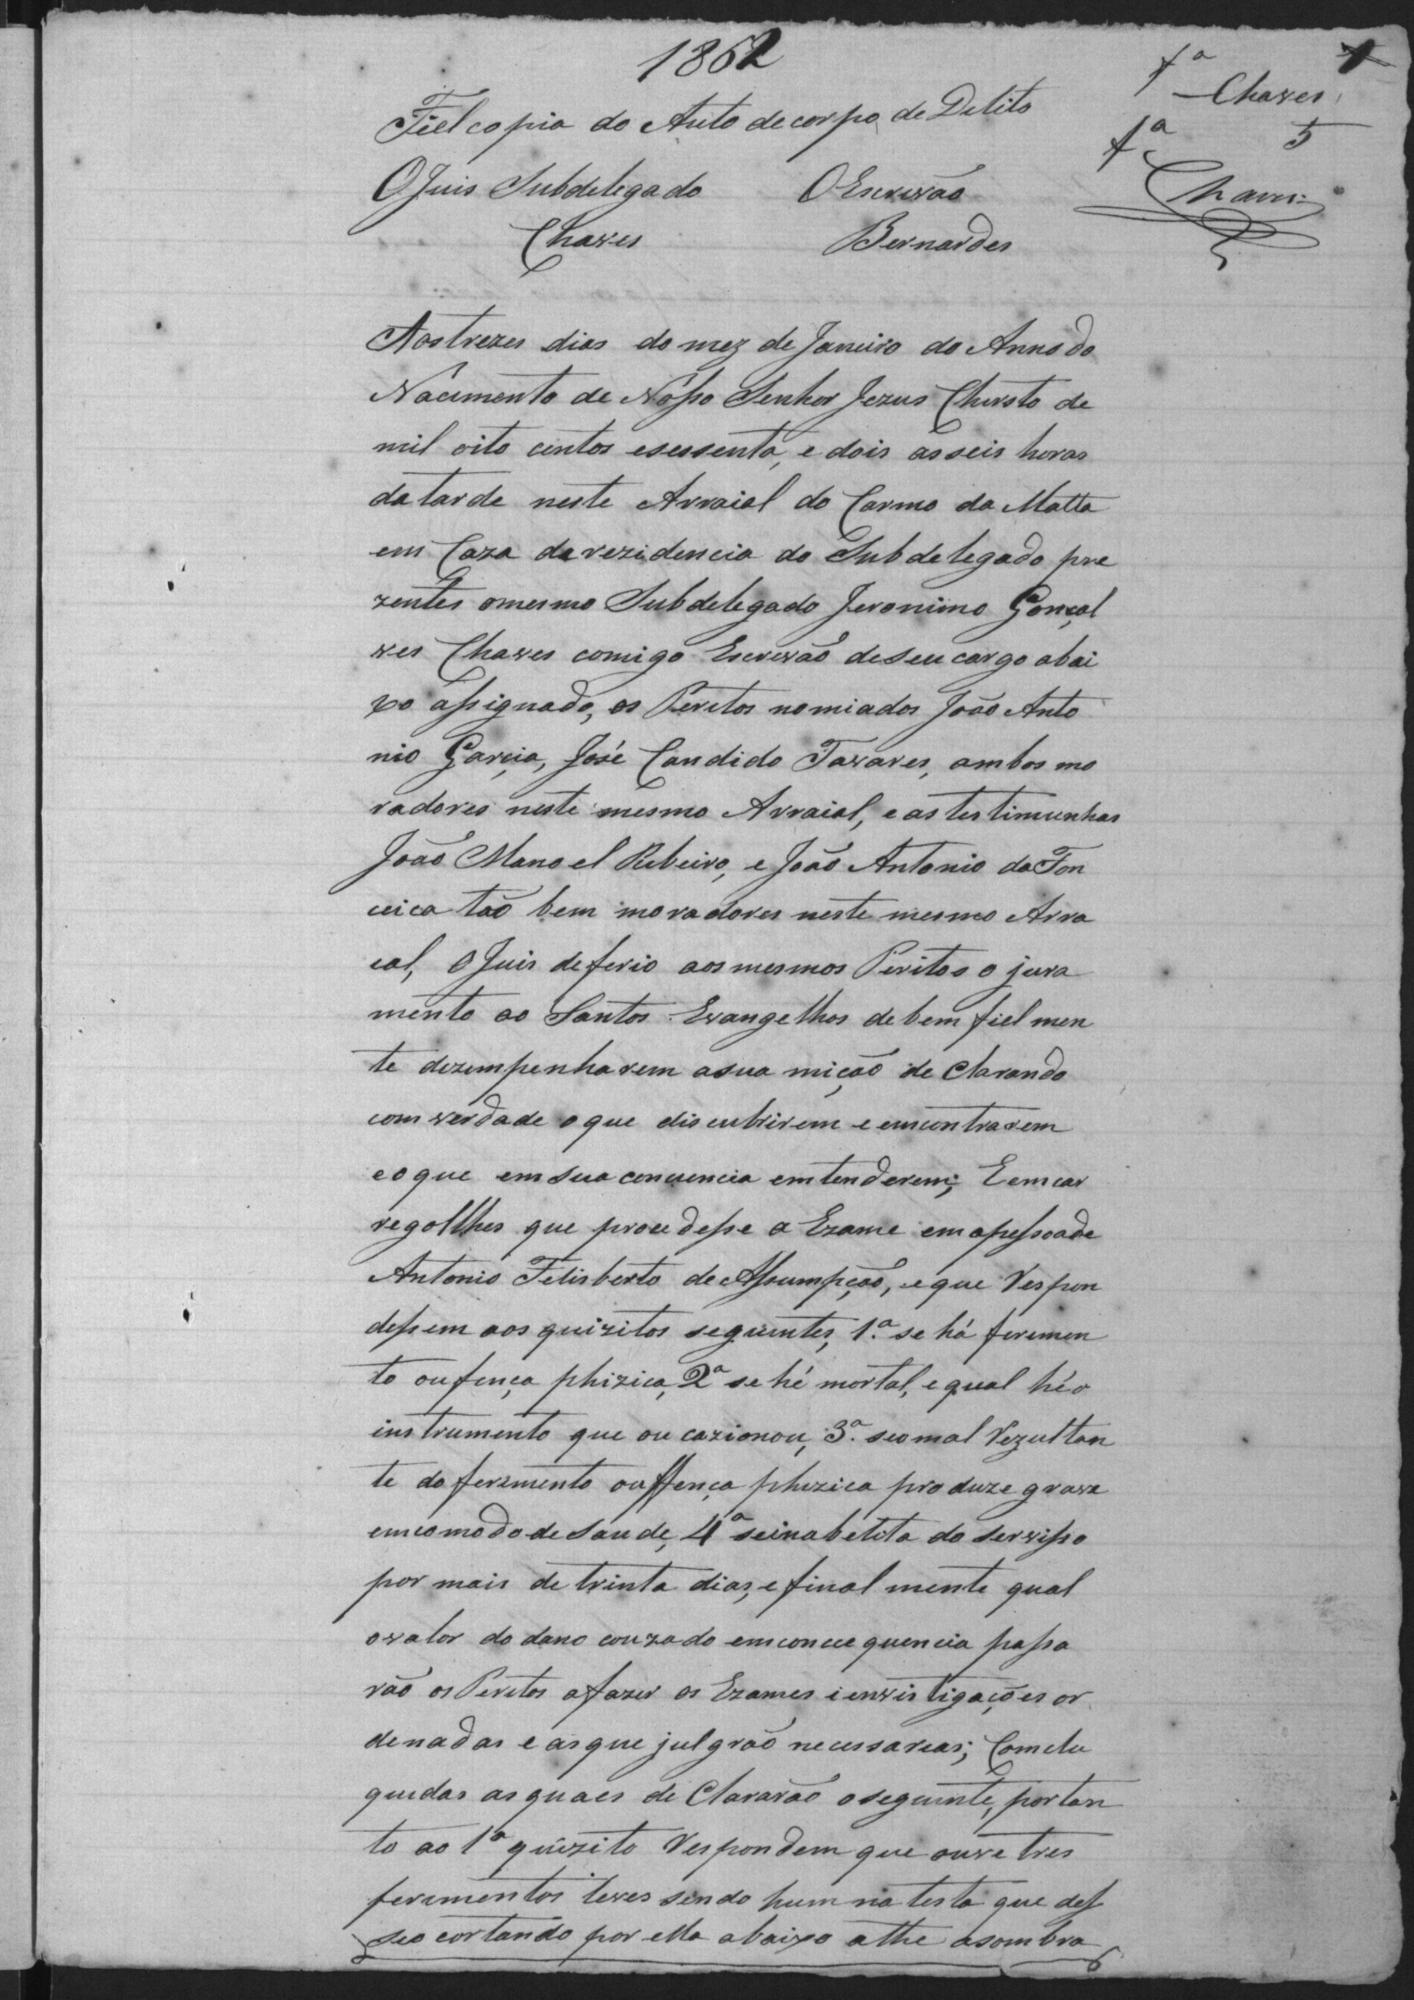 1862
1
fª Chaves
fª 5
Chaves
Fiel copia do Auto de corpo de Delito
O Juis Subdelegado O Escrivão
Chaves Bernardes
Aos trezes dias do mez de Janeiro do Anno do
Nacimento de Nósso Senhor Jezus Christo de
mil oito centos esessenta, e dois as seis horas
da tarde neste Arraial do Carmo da Matta
em Caza da rezidencia do Subdelegado pre
zentes omesmo Subdelegado Jeronimo Gonçal
ves Chaves comigo Escrivão deseu cargo abai
xo assignado, os Peritos nomiados João Anto
nio Garçia, José Candido Tavares, ambos mo
radores neste mesmo Arraial, e as testimunhas
João Manoel Ribeiro, e João Antonio da Fon
ceica tão bem moradores neste mesmo Arra
eal, O Juis deferio aos mesmos Peritos o jura
mento ao Santos Evangelhos de bem fiel men
te dezempenharem asua miçaõ de clarando
com verdade oque discubrirem e emcontrarem
eoque em sua concuencia emtenderem; E emcar
regolhes que procedesse a Ezame em apessoade
Antonio Felisberto de Assumpção, eque Respon
dessem aos quizitos seguintes, 1.ª se há ferimen
to oufença phizica, 2ª se hé mortal, e qual hé o
instrumento que ou cazionou, 3.ª seomal Rezultan
te do ferimento ouffença phizica produze grave
emcomodo de saude, 4ª seinabelita do servisso
por mais de trinta dias, e final mente qual
ovalor do dano couzado emconcequencia passa
rão os Peritos afazer os Ezames ienvistigações or
denadas e asque julgrão necessareas; Comclu
quidas asquaes de Clararão oseguinte, portan
to ao 1ª quizito Respondem que ouve tres
ferimentos leves sendo hum na testa que des
seo cortando por ella abaixo athe asombra